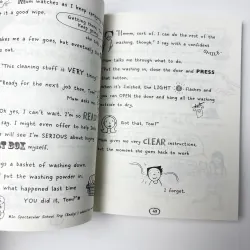 Mum watches as I keep
it a good wipe.
Getting there...
Keep going...
makes me a few goes, but eventually
off.
"This cleaning stuff is VERY
"Ready for the next job then, Tom?"
Mum asks me.
Oh yes, I can't wait. I'm so READY
say. I might even offer to help
I will see I'm SERIOUS about
BOX myself.
a basket of washing down.
put the washing powder in,
what happened last time
YOU did it, Tom!"
"Hmmm, sort of. I can do the rest of the
washing, though," I say with confidence
Mum talks me through what to do.
Put the washing in, close the door and PRESS
that button.
When it's finished, the LIGHT flashes and
you can OPEN the door and hang all the washing
outside to dry.
Got that, Tom?"
Mum gave me very CLEAR instructions.
but the moment she goes back to work
I forget.